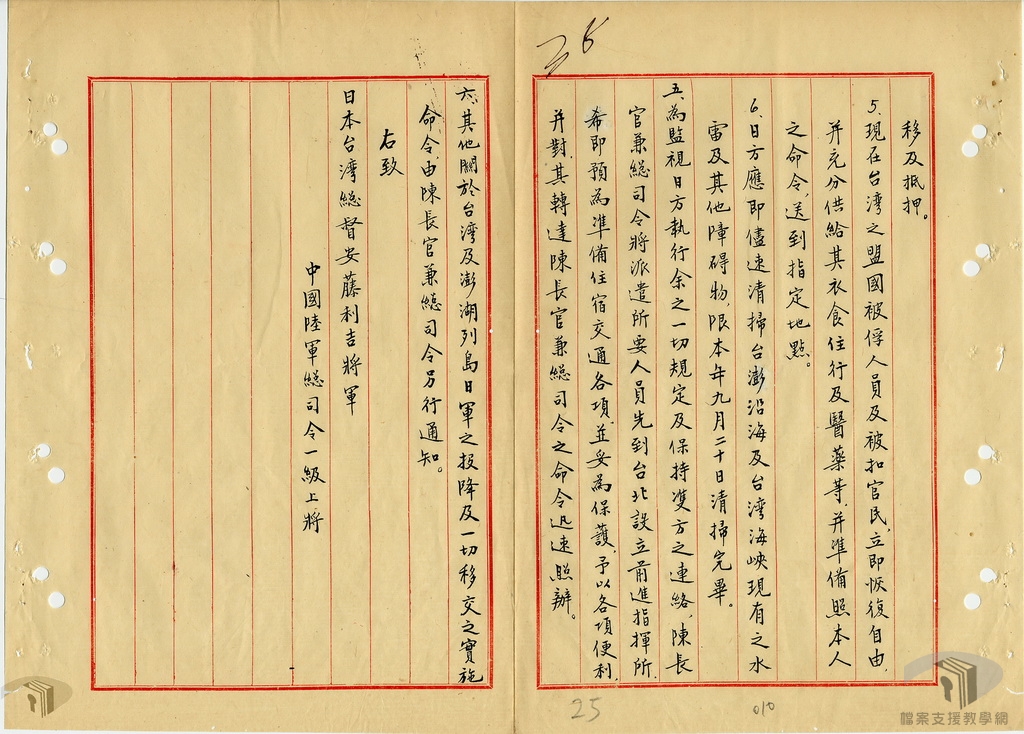 移及抵押。
5、現在台湾之盟國被俘人員及被扣官民，立即恢復自由，
并充分供給其衣食住行及醫藥等，并準備照本人
之命令，送到指定地點。
6、日方應即儘速清掃台澎沿海及台湾海峽現有之水
雷及其他障碍物，限本年九月二十日清掃完畢。
五、為監視日方執行余之一切規定及保持雙方之連絡，陳長
官兼總司令將派遣所要人員先到台北設立前進指揮所，
希即預為準備住宿交通各項，並妥為保護，予以各項便利，
并對其轉達陳長官兼總司令之命令迅速照辦。
六、其他關於台湾及澎湖列島日軍之投降及一切移交之實施
命令，由陳長官兼總司令另行通知。
右致
日本台湾總督安藤利吉將軍
中國陸軍總司令一級上將
25
010
檔案支援教學網